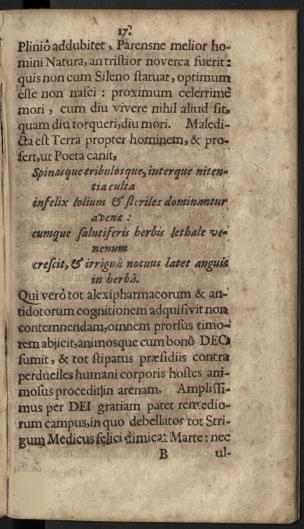 17.
Pliniô addubitet, Parensne melior ho-
mini Natura, an tristior noverca fuerit:
quis non cum Sileno statuat, optimum
esse non nasci: proximum celerrimè
mori, cum diu vivere nihil aliud sit,
quam diu torqueri, diu mori. Maledi-
cta est Terra propter hominem, & pro-
fert, ut Poeta canit,
Spinasque tribulosque, interque niten-
tia culta
infelix lolium & steriles dominantur
avenæ:
cumque salutiferis herbis lethale ve-
nenum
crescit, & irriguâ nocuus latet anguis
in herbâ.
Qui verò tot alexipharmacorum & an-
tidotorum cognitionem adquisivit non
contemnendam, omnem prorsus timo-
rem abjicit, animosque cum bonô DEO
sumit, & tot stipatus præsidiis contra
perduelles humani corporis hostes ani-
mosus procedit in arenam. Amplissi-
mus per DEI gratiam patet remedio-
rum campus, in quo debellator tot Stri-
gum Medicus felici dimicat Marte: nec
B ul-